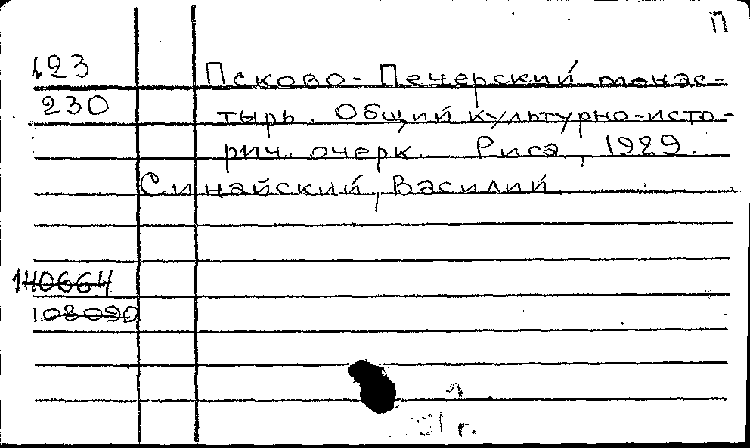 П
123
230
Псково-Печерский монас-
тырь. Общий культурно-исто-
рич. очерк. Рига, 1929.
Синайский, Василий
140664
108090
г.